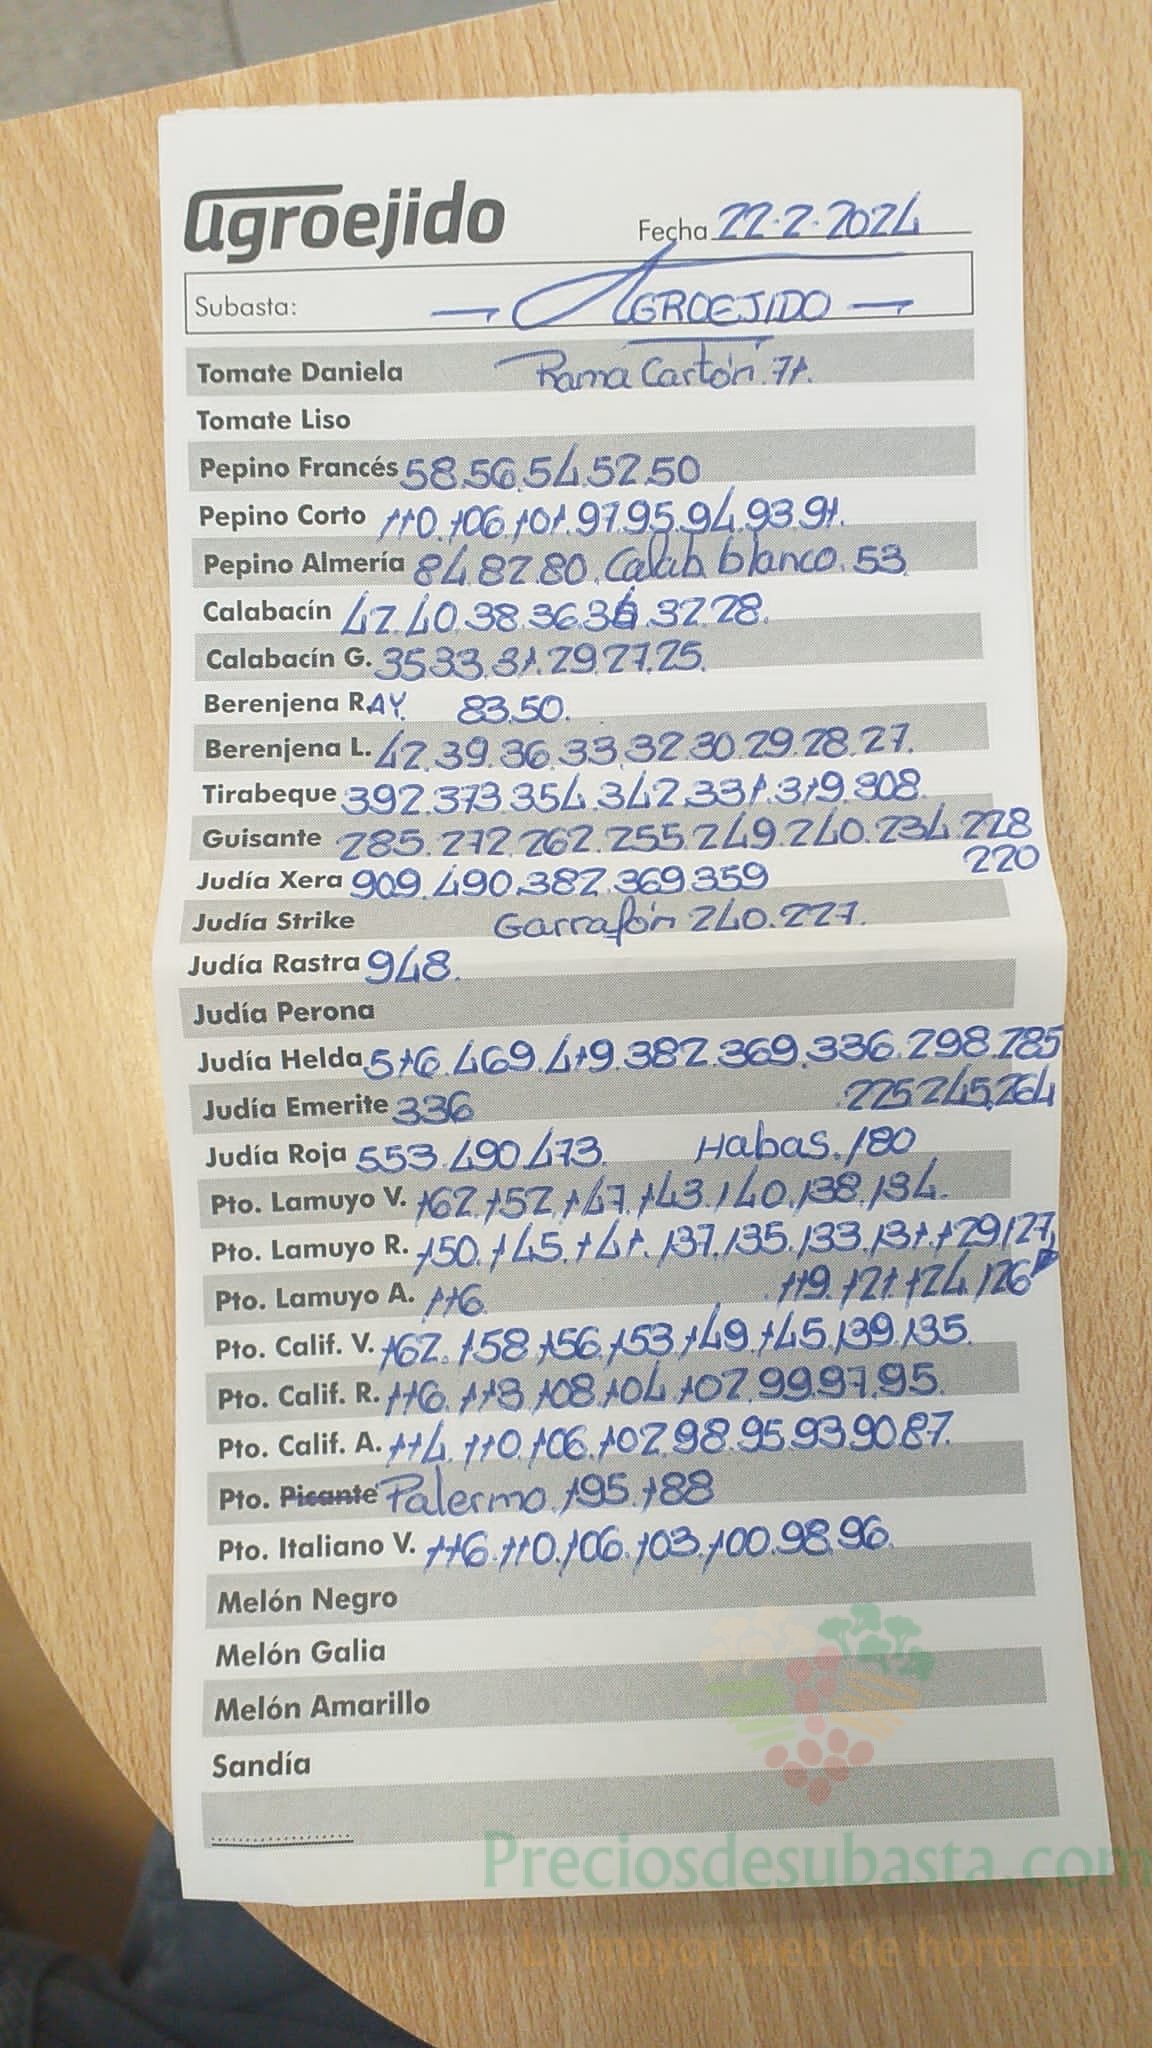 agroejido
Fecha 22-2-2024
Subasta: — AGROEJIDO —
Tomate Daniela Rama Cartón.71.
Tomate Liso
Pepino Francés 58.56.54.52.50
Pepino Corto 110.106.101.97.95.94.93.91.
Pepino Almería 84.82.80. Calab. blanco. 53
Calabacín 42.40.38.36.34.32.28.
Calabacín G. 35.33.31.29.27.25.
Berenjena RAY. 83.50.
Berenjena L. 42.39.36.33.32.30.29.28.27.
Tirabeque 392.373.354.342.331.319.308.
Guisante 285.272.262.255.249.240.234.228
220
Judía Xera 909.490.382.369.359
Judía Strike Garrafón 240.227.
Judía Rastra 948.
Judía Perona
Judía Helda 516.469.419.382.369.336.298.285
225.245.264
Judía Emerite 336
Judía Roja 553.490.473. Habas. 180
Pto. Lamuyo V. 162.152.147.143.140.138.134.
Pto. Lamuyo R. 150.145.141.137.135.133.131.129.127,
119.121.124.126
Pto. Lamuyo A. 116.
Pto. Calif. V. 162.158.156.153.149.145.139.135.
Pto. Calif. R. 116.113.108.104.102.99.97.95.
Pto. Calif. A. 114.110.106.102.98.95.93.90.87.
Pto. Picante Palermo.195.188
Pto. Italiano V. 116.110.106.103.100.98.96.
Melón Negro
Melón Galia
Melón Amarillo
Sandía
Preciosdesubasta.com
La mayor web de hortalizas